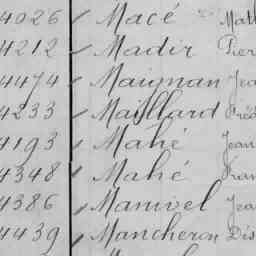 4026 Macé
4212 Madir
4474 Maignan Jea
4233 Maillard Fréd
4193 Mahé Jean
4348 Mahé Fran
4386 Manivel Jea
4439 Mancheron Dés